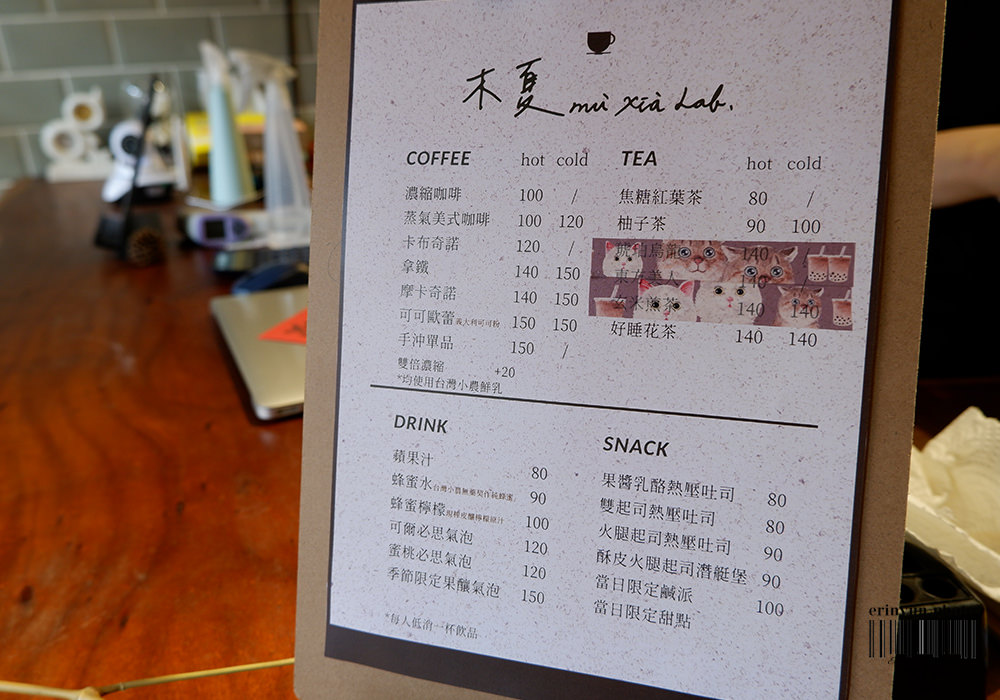 木夏 mù xià Lab.
COFFEE hot cold
濃縮咖啡 100 /
蒸氣美式咖啡 100 120
卡布奇諾 120 /
拿鐵 140 150
摩卡奇諾 140 150
可可歐蕾 義大利可可粉 150 150
手沖單品 150 /
雙倍濃縮 +20
*均使用台灣小農鮮乳
TEA hot cold
焦糖紅葉茶 80 /
柚子茶 90 100
琥珀烏龍 140 /
東方美人 140 /
玄米煎茶 140 140
好睡花茶 140 140
DRINK
蘋果汁 80
蜂蜜水 台灣小農無藥契作純蜂蜜 90
蜂蜜檸檬 100
可爾必思氣泡 120
蜜桃必思氣泡 120
季節限定果釀氣泡 150
*每人低消一杯飲品
SNACK
果醬乳酪熱壓吐司 80
雙起司熱壓吐司 80
火腿起司熱壓吐司 90
酥皮火腿起司潛艇堡 90
當日限定鹹派 100
當日限定甜點